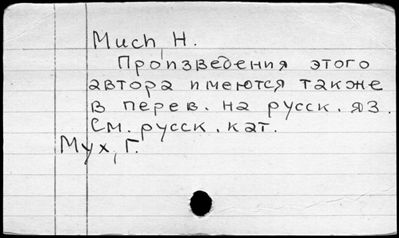 Much, H.
Произведения этого
автора имеются также
в перев. на русск. яз.
См. русск. кат.
Мух, Г.